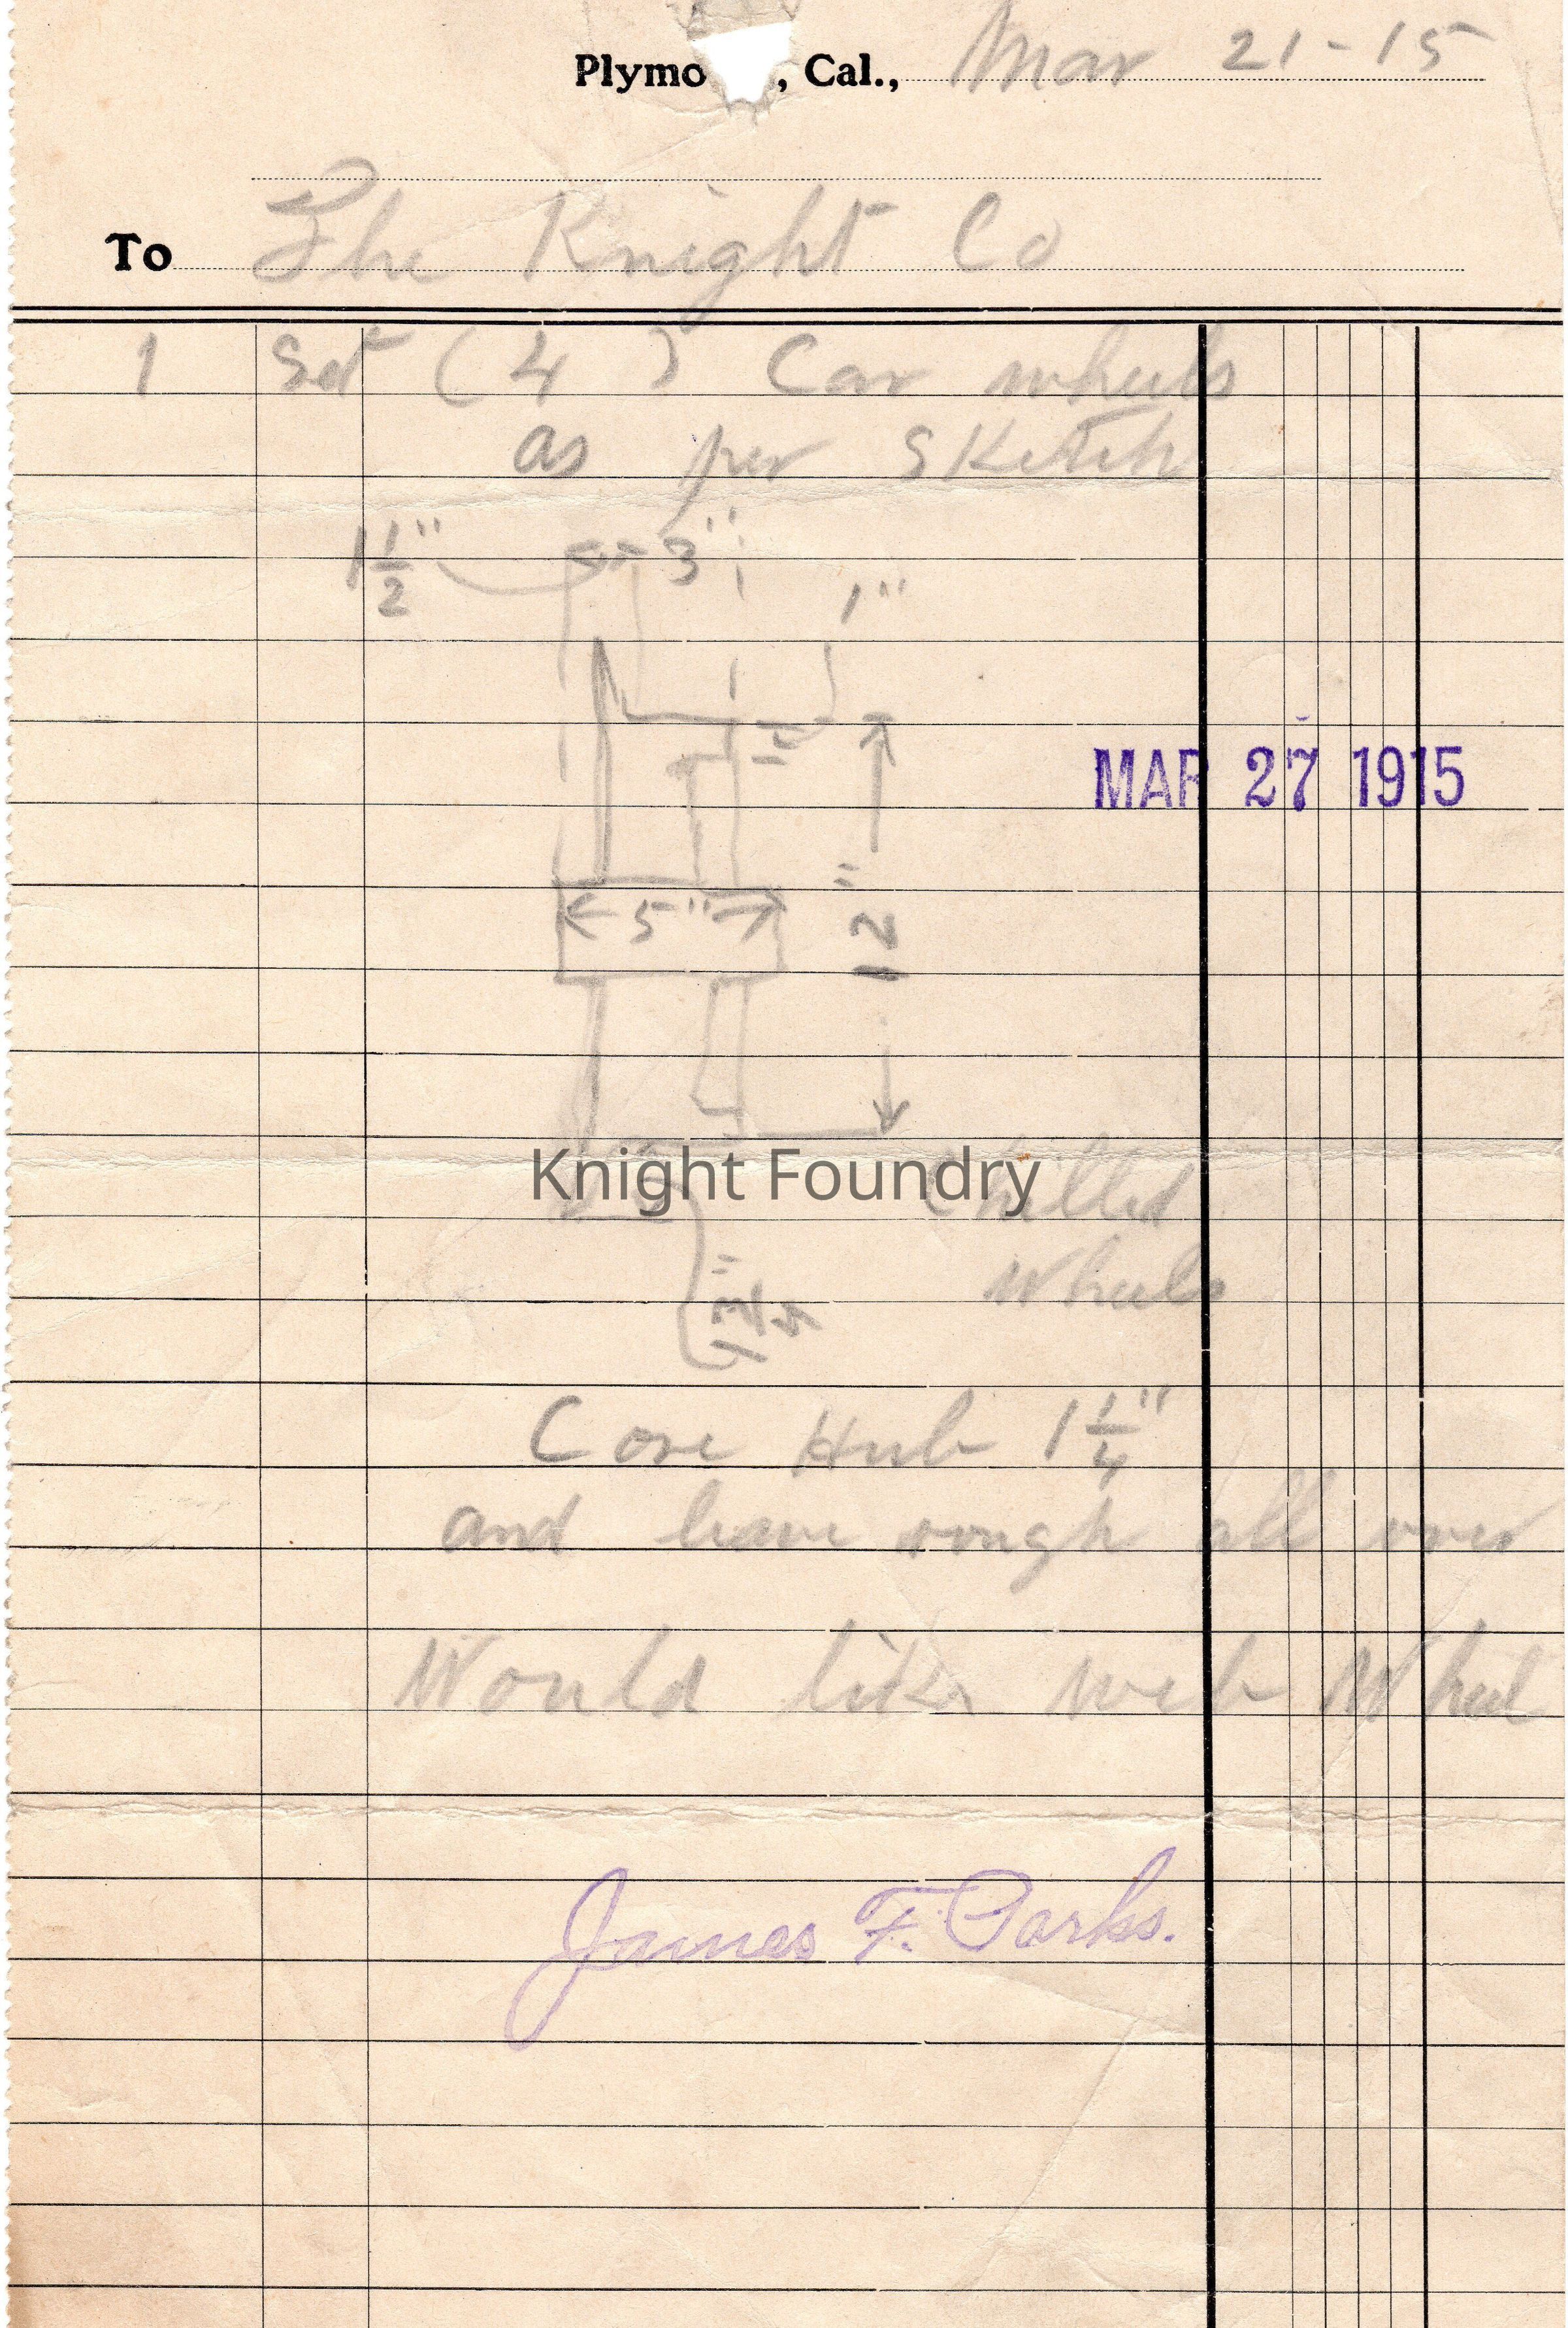 Plymo , Cal., Mar 21-15
To The Knight Co
1 Set (4) Car wheels
as per sketch
1 1/2" 3"
1"
MAR 27 1915
5"
12"
Knight Foundry
Chilled
Wheels
Core Hub 1 1/4"
and leave rough all over
Would like web Wheel
James F. Parks.